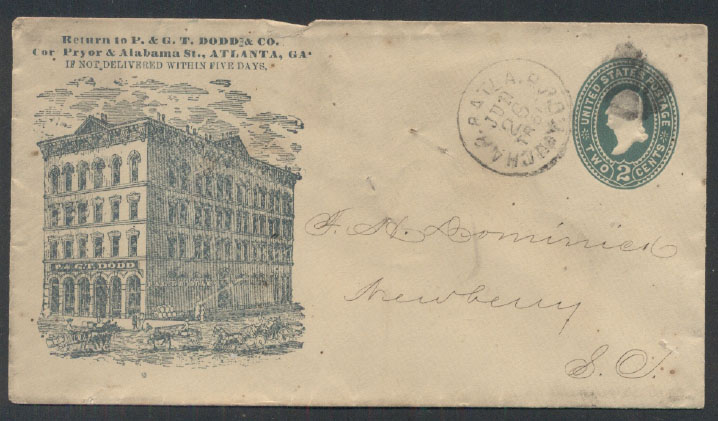 Return to P. & G. T. DODD & CO.
Cor Pryor & Alabama St., ATLANTA, GA.
IF NOT DELIVERED WITHIN FIVE DAYS.
P. & G.T. DODD
UNITED STATES POSTAGE
TWO 2 CENTS
J. H. Dominick
Newberry
S. C.